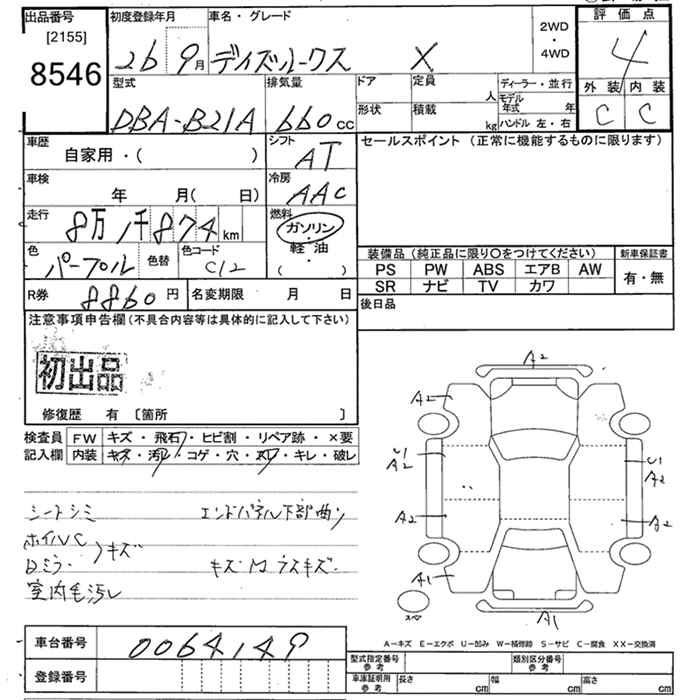 出品番号
[2155]
8546
初度登録年月
26 9月
車名・グレード
デイズルークス X
2WD
・
4WD
評価点
4
外装 内装
C C
型式
DBA-B21A
排気量
660cc
ドア
定員
人
形状
積載
kg
ディーラー・並行
モデル
年式 年
ハンドル 左・右
車歴
自家用・( )
シフト
AT
セールスポイント (正常に機能するものに限ります)
車検
年 月( 日)
冷房
AAC
走行
8万1千874km
燃料
ガソリン
軽・油
( )
色
パープル
色替
色コード
C12
装備品 (純正品に限り〇をつけてください)
新車保証書
PS PW ABS エアB AW
有・無
SR ナビ TV カワ
R券
8860円
名変期限 月 日
後日品
注意事項申告欄 (不具合内容等は具体的に記入して下さい)
初出品
修復歴 有 〔箇所 〕
検査員
記入欄
FW キズ・飛石・ヒビ割・リペア跡・×要
内装 キズ・汚レ・コゲ・穴・スレ・キレ・破レ
シートシミ エンドパネル下部曲り
ホイルC
Dミラー キズ
キズM ラスキズ
室内毛汚レ
A2
A2
U1
A2
U1
A2
A2
A2
A1
スペ
A1
車台番号
0064149
登録番号
A-キズ E-エクボ U-凹み W-補修跡 S-サビ C-腐食 XX-交換済
型式指定番号
参考
類別区分番号
参考
車庫証明用
参考
長さ cm
幅 cm
高さ cm